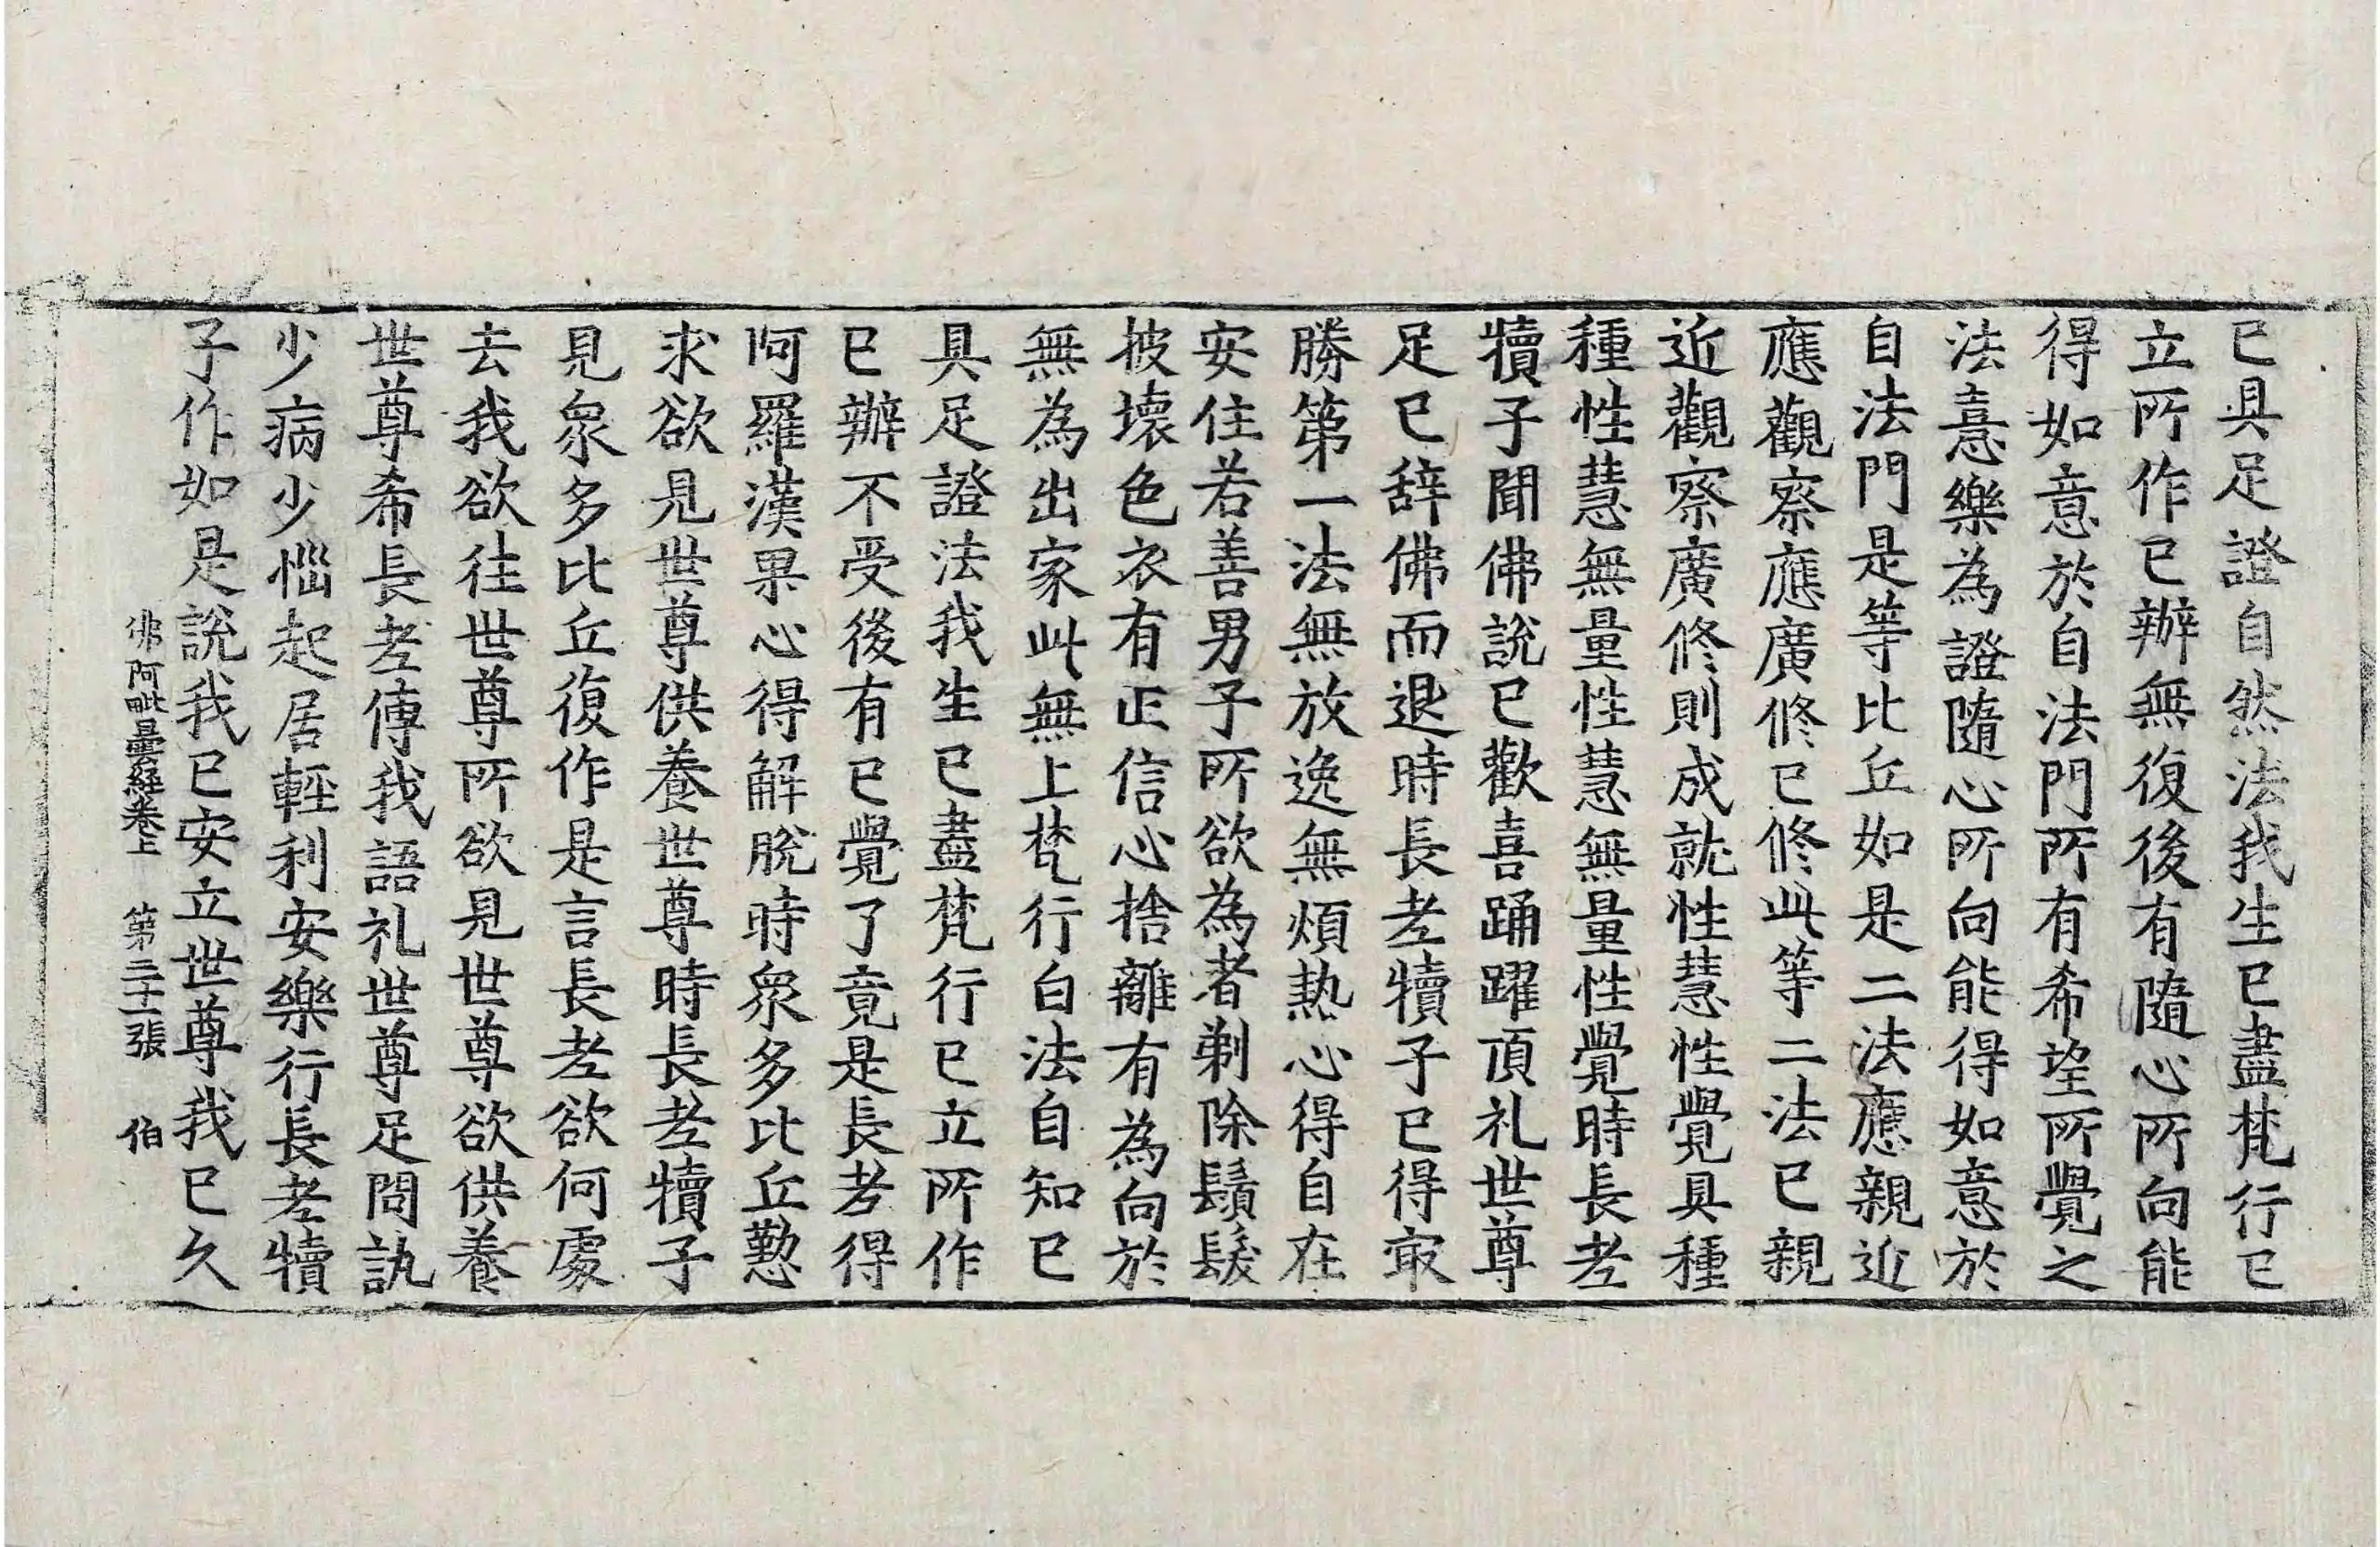 已具足證自然法我生已盡梵行已
立所作已辦無復後有隨心所向能
得如意於自法門所有希望所覺之
法意樂為證隨心所向能得如意於
自法門是等比丘如是二法應親近
應觀察應廣修已修此等二法已親
近觀察廣修則成就性慧性覺具種
種性慧無量性慧無量性覺時長老
犢子聞佛說已歡喜踊躍頂礼世尊
足已辞佛而退時長老犢子已得㝡
勝第一法無放逸無煩熱心得自在
安住若善男子所欲為者剃除鬚髮
披壞色衣有正信心捨離有為向於
無為出家此無上梵行白法自知已
具足證法我生已盡梵行已立所作
已辦不受後有已覺了竟是長老得
阿羅漢果心得解脫時衆多比丘懃
求欲見世尊供養世尊時長老犢子
見衆多比丘復作是言長老欲何處
去我欲往世尊所欲見世尊欲供養
世尊希長老傳我語礼世尊足問訊
少病少惱起居輕利安樂行長老犢
子作如是說我已安立世尊我已久
佛阿毗曇經卷上　第二十張　伯